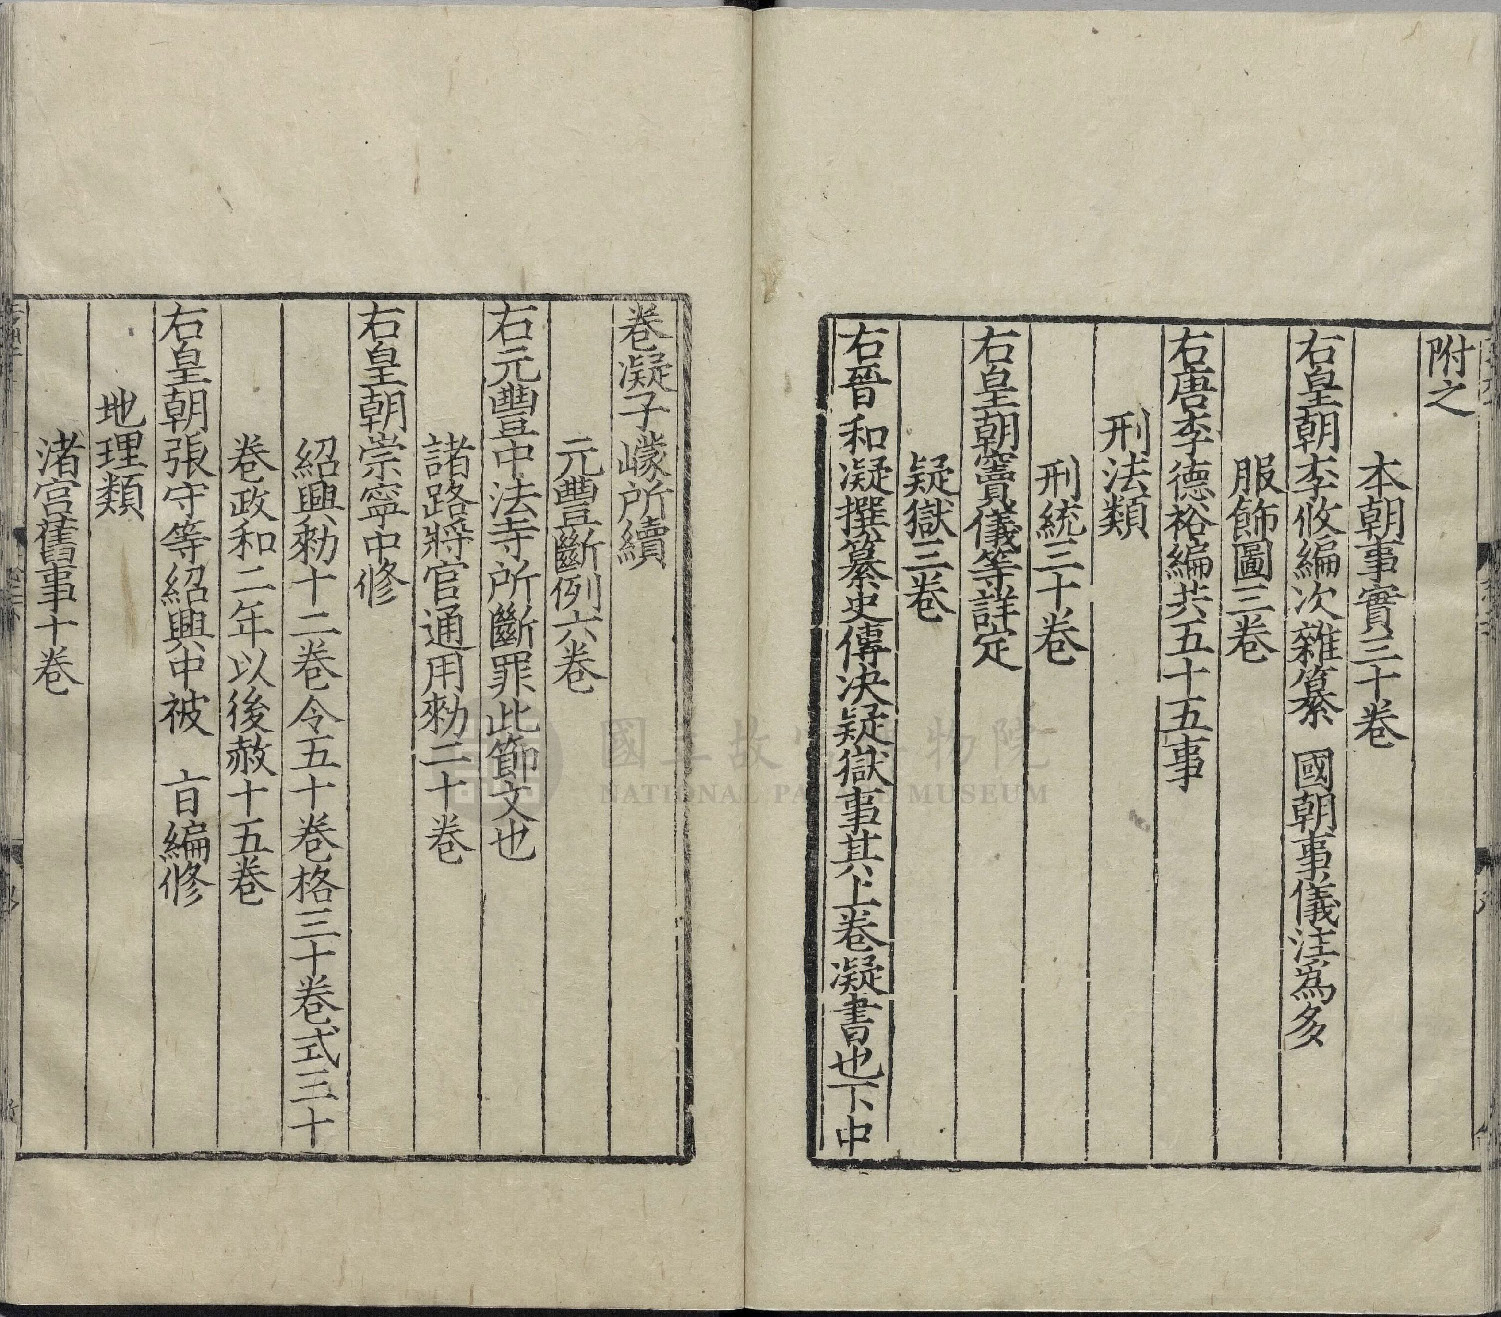 附之
本朝事實三十卷
右皇朝李攸編次雜纂 國朝事儀注爲多
服飾圖三卷
右唐李德裕編共五十五事
刑法類
刑統三十卷
右皇朝竇儀等詳定
疑獄三卷
右晉和凝撰纂史傳決疑獄事其上卷凝書也下中
卷凝子㠓所續
元豐斷例六卷
右元豐中法寺所斷罪此節文也
諸路將官通用勑二十卷
右皇朝崇寧中修
紹興勑十二卷令五十卷格三十卷式三十
卷政和二年以後赦十五卷
右皇朝張守等紹興中被 旨編修
地理類
渚宮舊事十卷
國立故宮博物院
NATIONAL PALACE MUSEUM